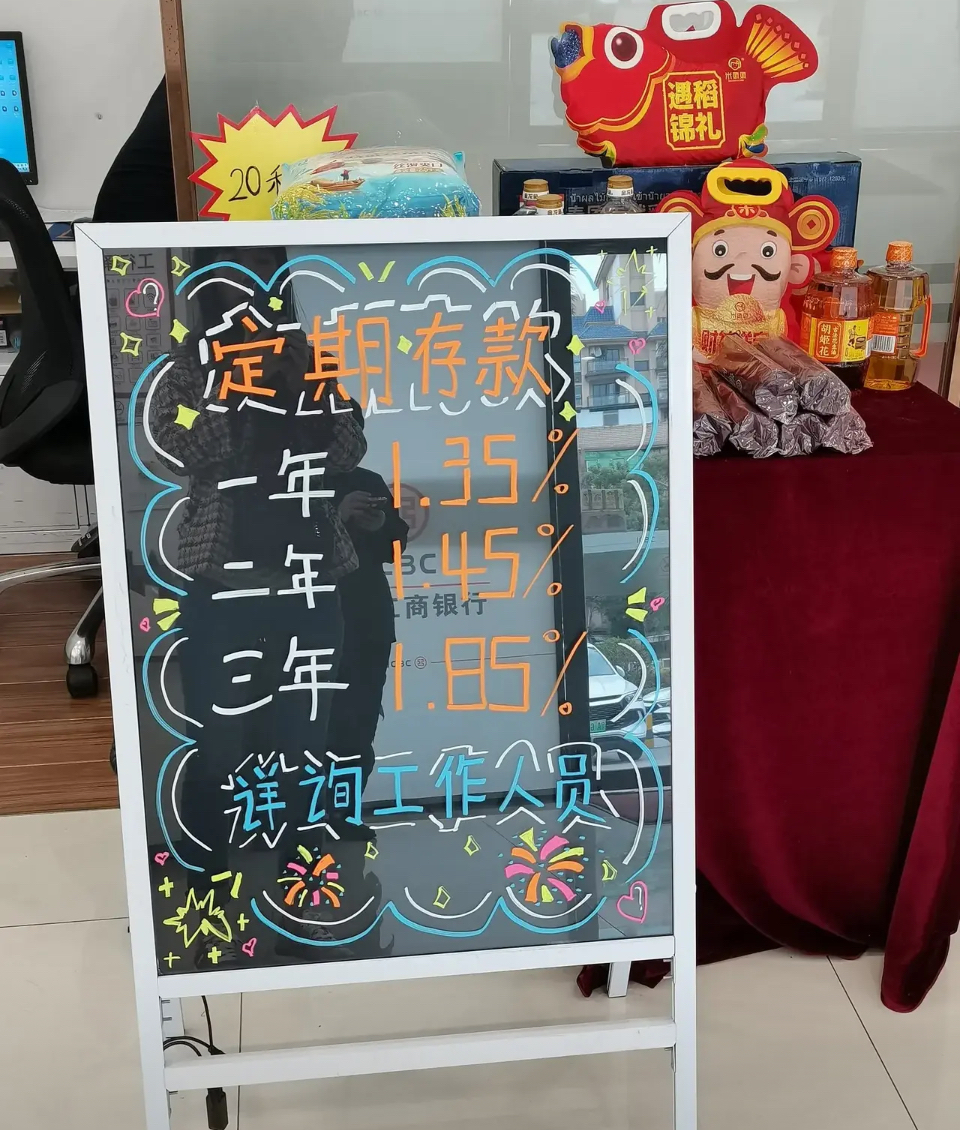 遇稻
锦礼
20
定期存款
一年 1.35%
二年 1.45%
三年 1.85%
详询工作人员
工商银行
胡姬花